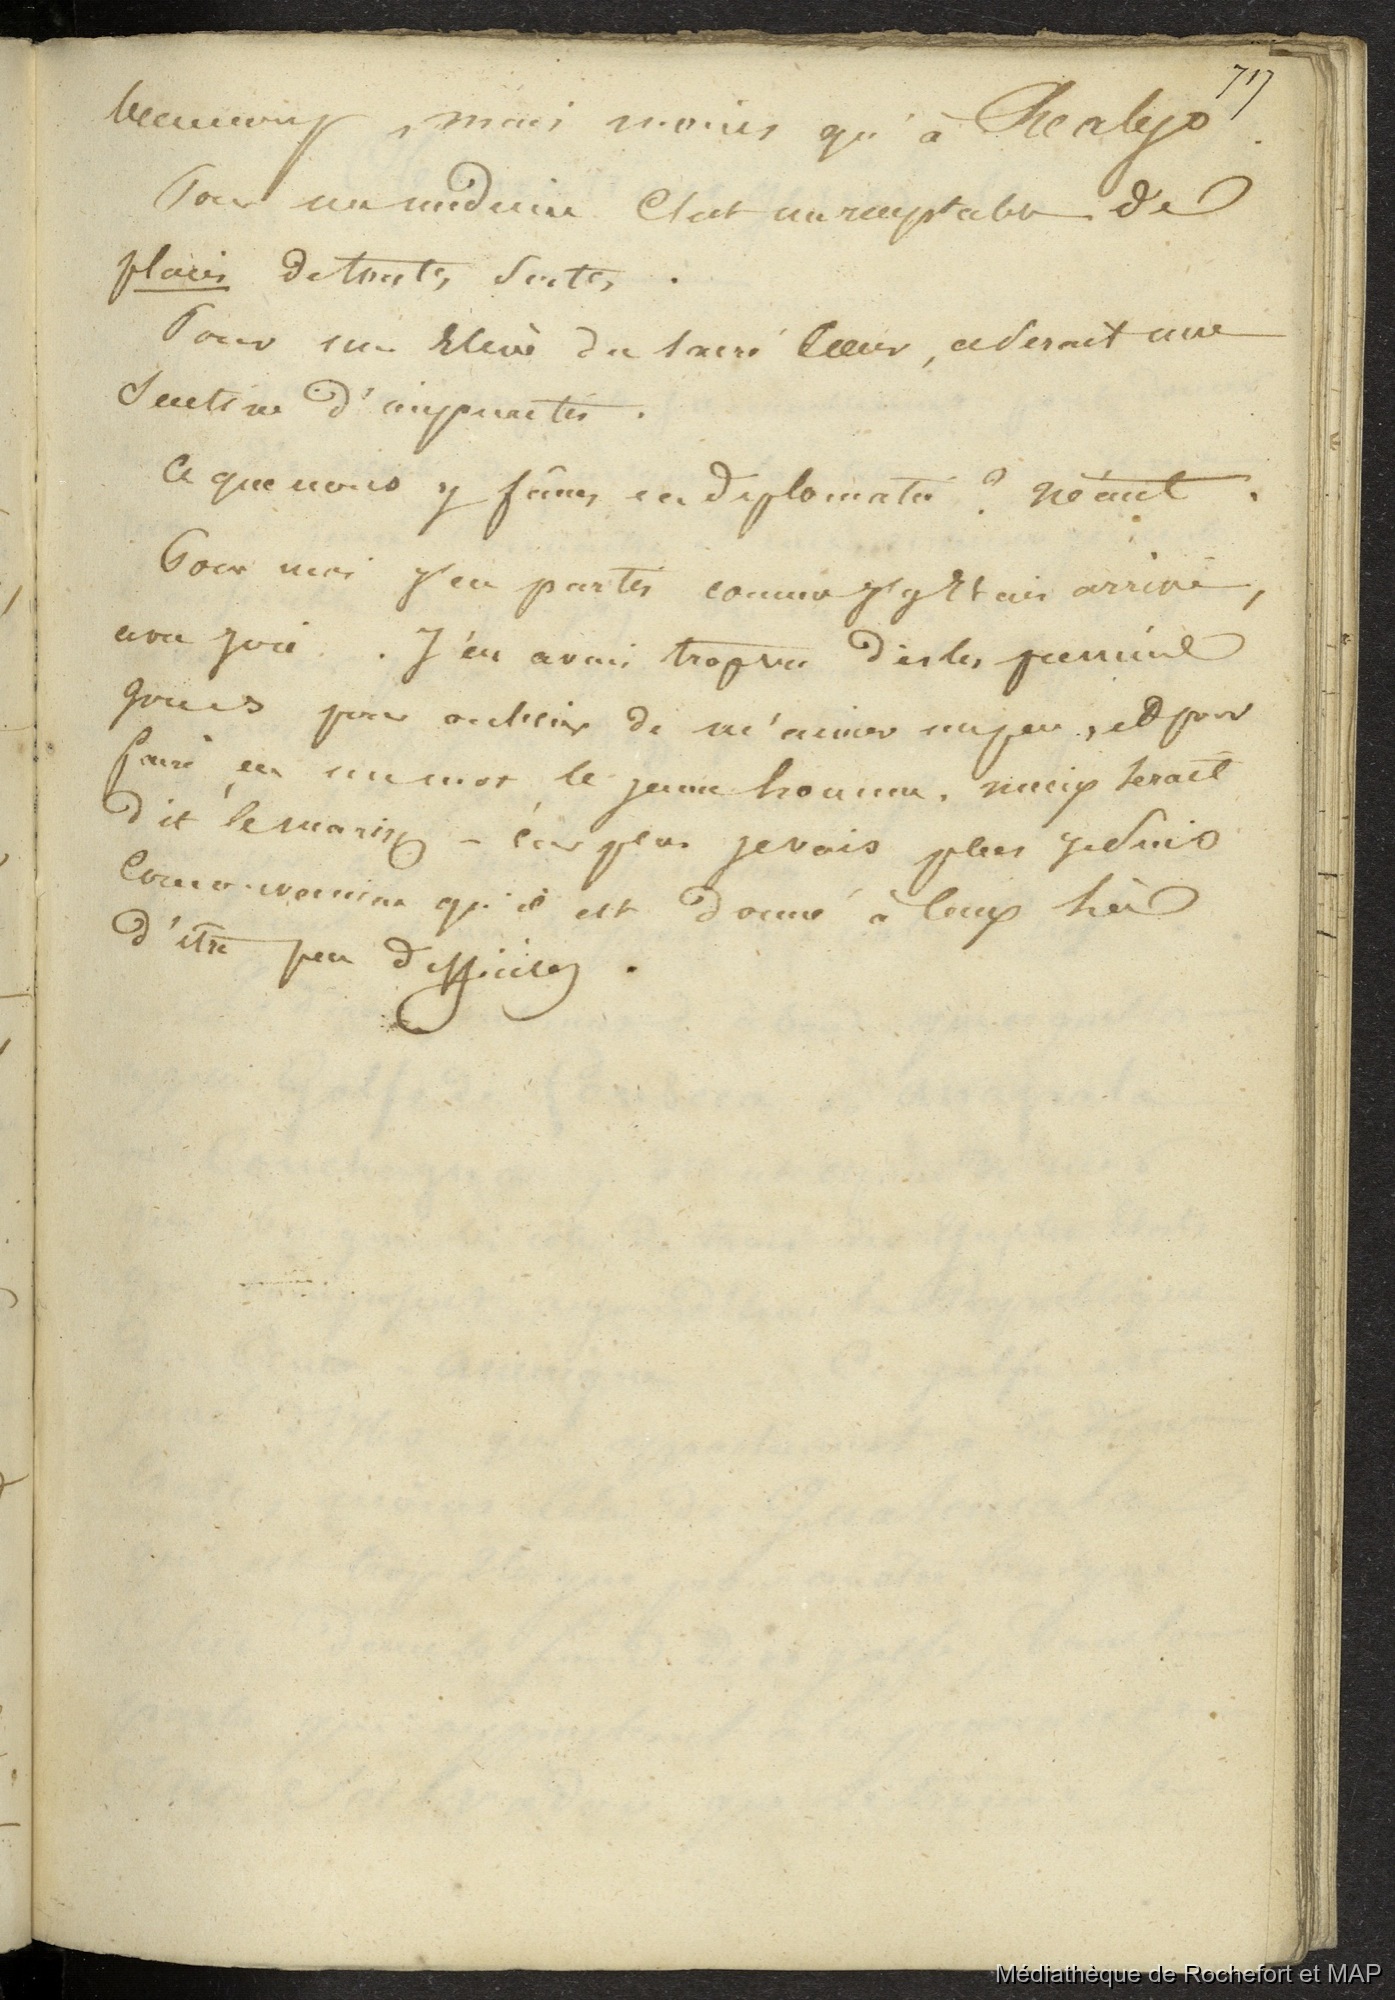 717
beaucoup, mais moins qu'à Realejo.
Pour un médecin C'est un receptable de
plaies de toutes sortes.
Pour un Elève du sacré Coeur, ce serait une
Sentine d'impuretés.
Ce que nous y fîmes en diplomatie? néant.
Pour moi j'en partis comme j'y Etais arrivé,
avec joie. J'en avais trop vu dès les premiers
jours pour oublier de m'aimer un peu, et pour
faire en un mot le jeune homme, mieux serait
dit le marin - Car plus je vais plus je suis
Convaincu qu'il est donné à ceux là
d'être peu difficiles.
Médiathèque de Rochefort et MAP